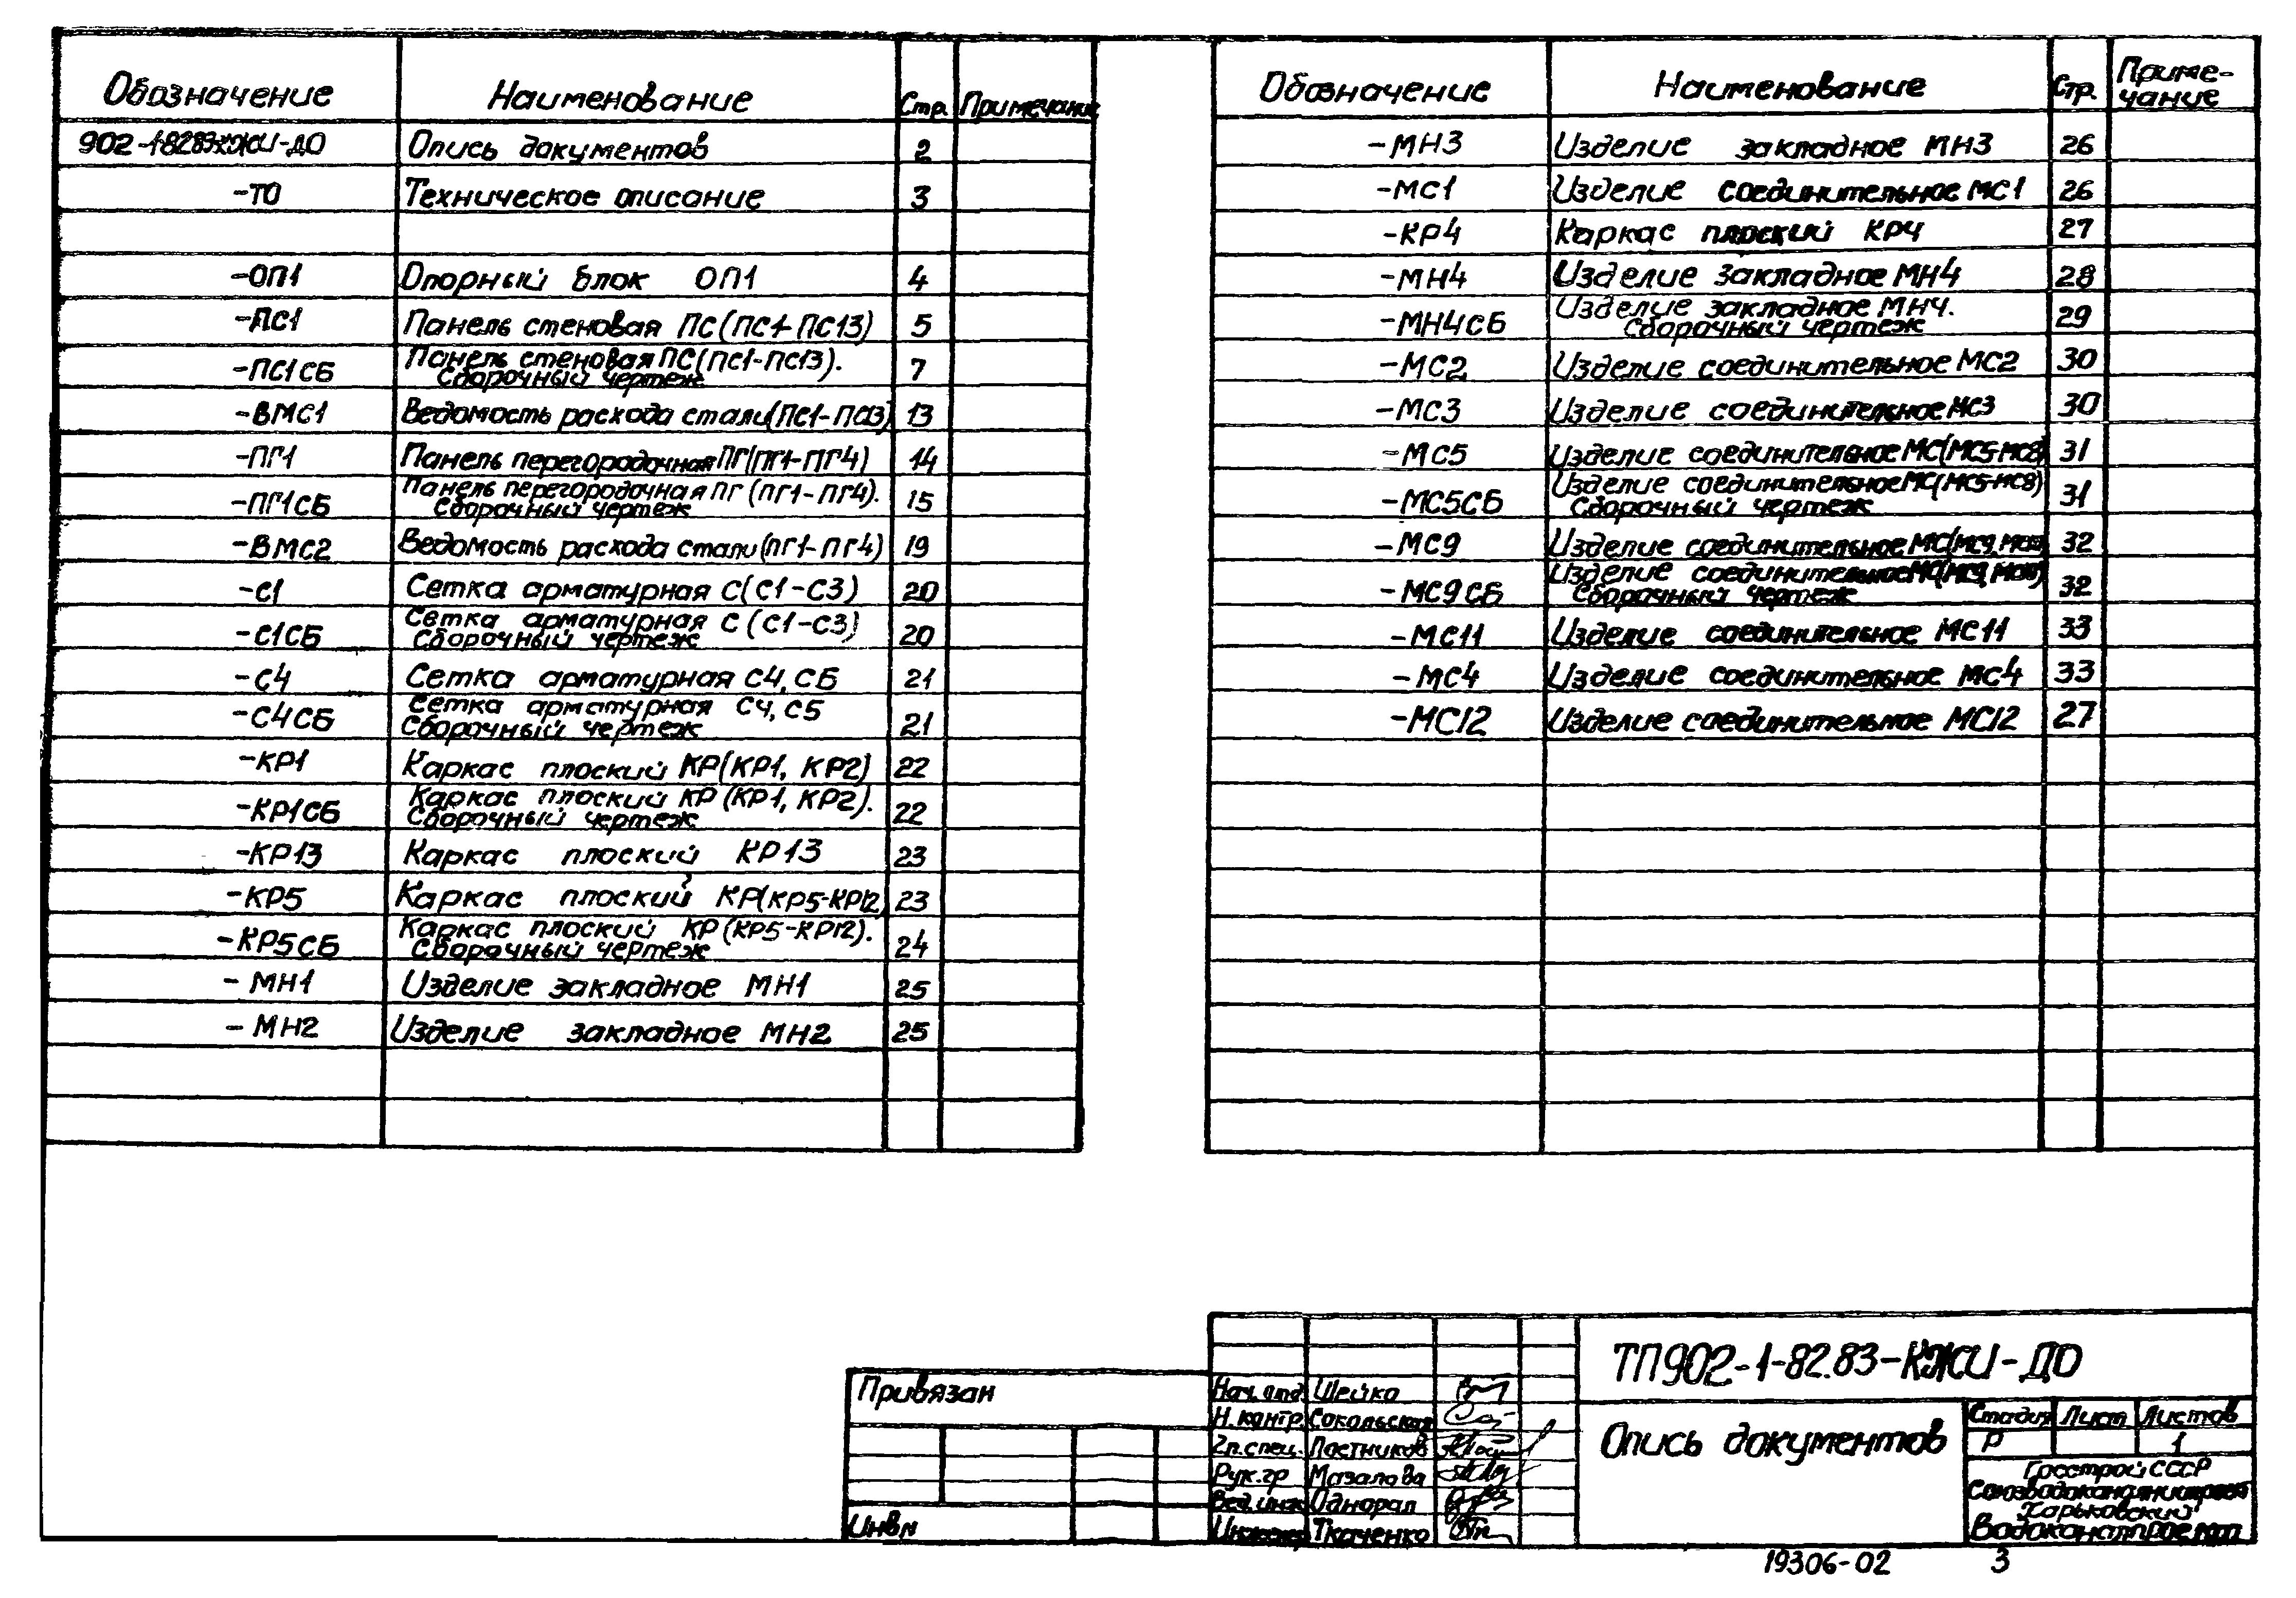 Обозначение Наименование Стр. Примечание
902-1-82.83-КЖИ-ДО Опись документов 2
-ТО Техническое описание 3
-ОП1 Опорный блок ОП1 4
-ПС1 Панель стеновая ПС(ПС1-ПС13) 5
-ПС1СБ Панель стеновая ПС(ПС1-ПС13).
Сборочный чертеж 7
-ВМС1 Ведомость расхода стали(ПС1-ПС13) 13
-ПГ1 Панель перегородочная ПГ(ПГ1-ПГ4) 14
-ПГ1СБ Панель перегородочная ПГ (ПГ1-ПГ4).
Сборочный чертеж 15
-ВМС2 Ведомость расхода стали(ПГ1-ПГ4) 19
-С1 Сетка арматурная С(С1-С3) 20
-С1СБ Сетка арматурная С (С1-С3)
Сборочный чертеж 20
-С4 Сетка арматурная С4, СБ 21
-С4СБ Сетка арматурная С4, С5
Сборочный чертеж 21
-КР1 Каркас плоский КР(КР1, КР2) 22
-КР1СБ Каркас плоский КР (КР1, КР2).
Сборочный чертеж 22
-КР13 Каркас плоский КР13 23
-КР5 Каркас плоский КР(КР5-КР12 23
-КР5СБ Каркас плоский КР (КР5-КР12).
Сборочный чертеж 24
-МН1 Изделие закладное МН1 25
-МН2 Изделие закладное МН2 25
Обозначение Наименование Стр. Приме-
чание
-МН3 Изделие закладное МН3 26
-МС1 Изделие соединительное МС1 26
-КР4 Каркас плоский КР4 27
-МН4 Изделие закладное МН4 28
-МН4СБ Изделие закладное МН4.
Сборочный чертеж 29
-МС2 Изделие соединительное МС2 30
-МС3 Изделие соединительное МС3 30
-МС5 Изделие соединительное МС(МС5-МС8) 31
-МС5СБ Изделие соединительное МС(МС5-МС8)
Сборочный чертеж 31
-МС9 Изделие соединительное МС(МС9, 32
-МС9СБ Изделие соединительное МС(МС9,
Сборочный чертеж 32
-МС11 Изделие соединительное МС11 33
-МС4 Изделие соединительное МС4 33
-МС12 Изделие соединительное МС12 27
Привязан
Инв№
Нач.отд. Шейко
Н.контр. Сокольская
Гл.спец. Постников
Рук.гр Мазалова
Вед.инж Однорал
Инженер Ткаченко
ТП902-1-82.83-КЖИ-ДО
Опись документов
Стадия Лист Листов
Р 1
Госстрой СССР
Союзводоканалниипроект
Харьковский
Водоканалпроект
19306-02 3